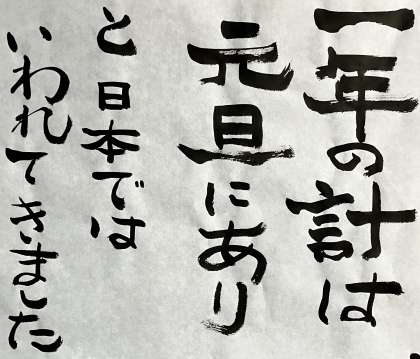 一年の計は
元旦にあり
と日本では
いわれてきました